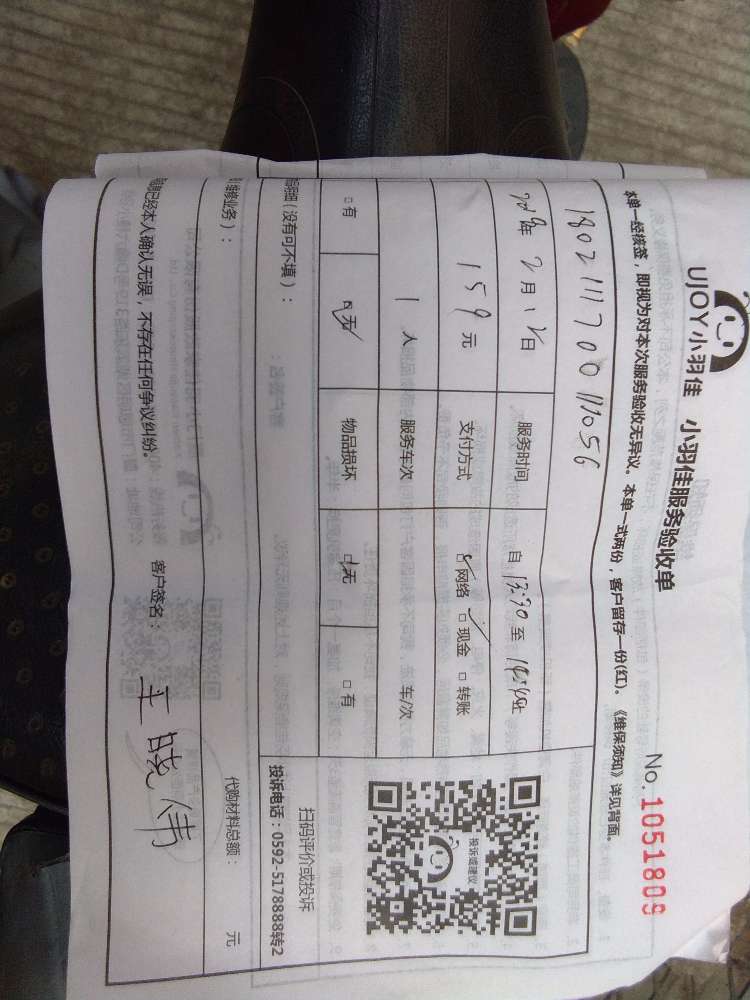 UJOY小羽佳 小羽佳服务验收单
No. 1051809
本单一经核签，即视为对本次服务验收无异议。本单一式两份，客户留存一份(红)。《维保须知》详见背面。
180211170011056
年 2 月 12 日 服务时间 自 13:30 至
159 元 支付方式 网络 现金 转账
1 人 服务车次 车/次
有 无 物品损坏 无 有
投诉或建议
扫码评价或投诉
投诉电话：0592-5178888转2
明细（没有可不填）：
维修业务）：
代购材料总额： 元
已经本人确认无误，不存在任何争议纠纷。
客户签名： 王晓伟